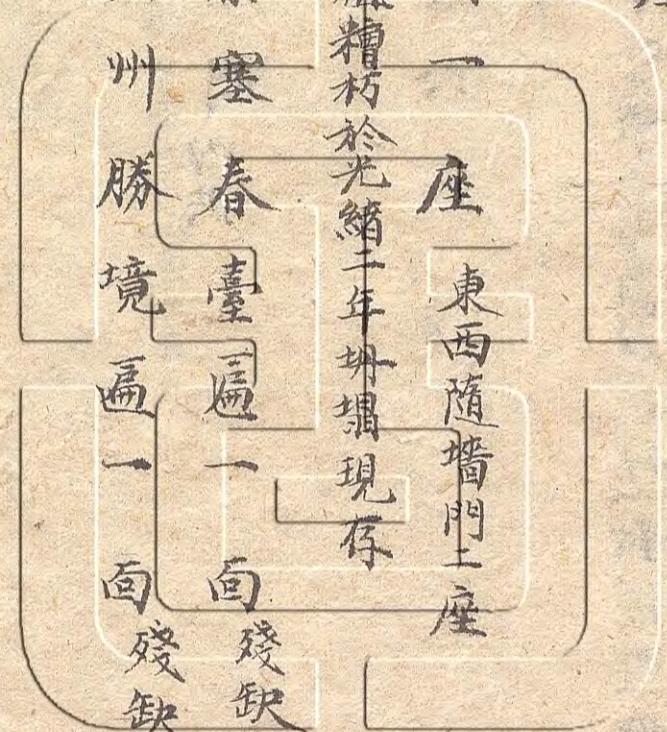 一座 東西隨墻門二座
糟朽於光緒二年坍塌現存
塞春臺匾一面殘缺
州勝境匾一面殘缺